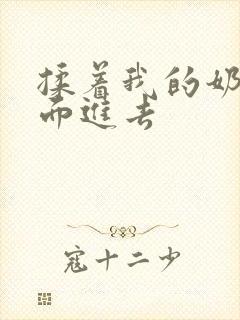 揉着我的奶
而進去
寇十二少